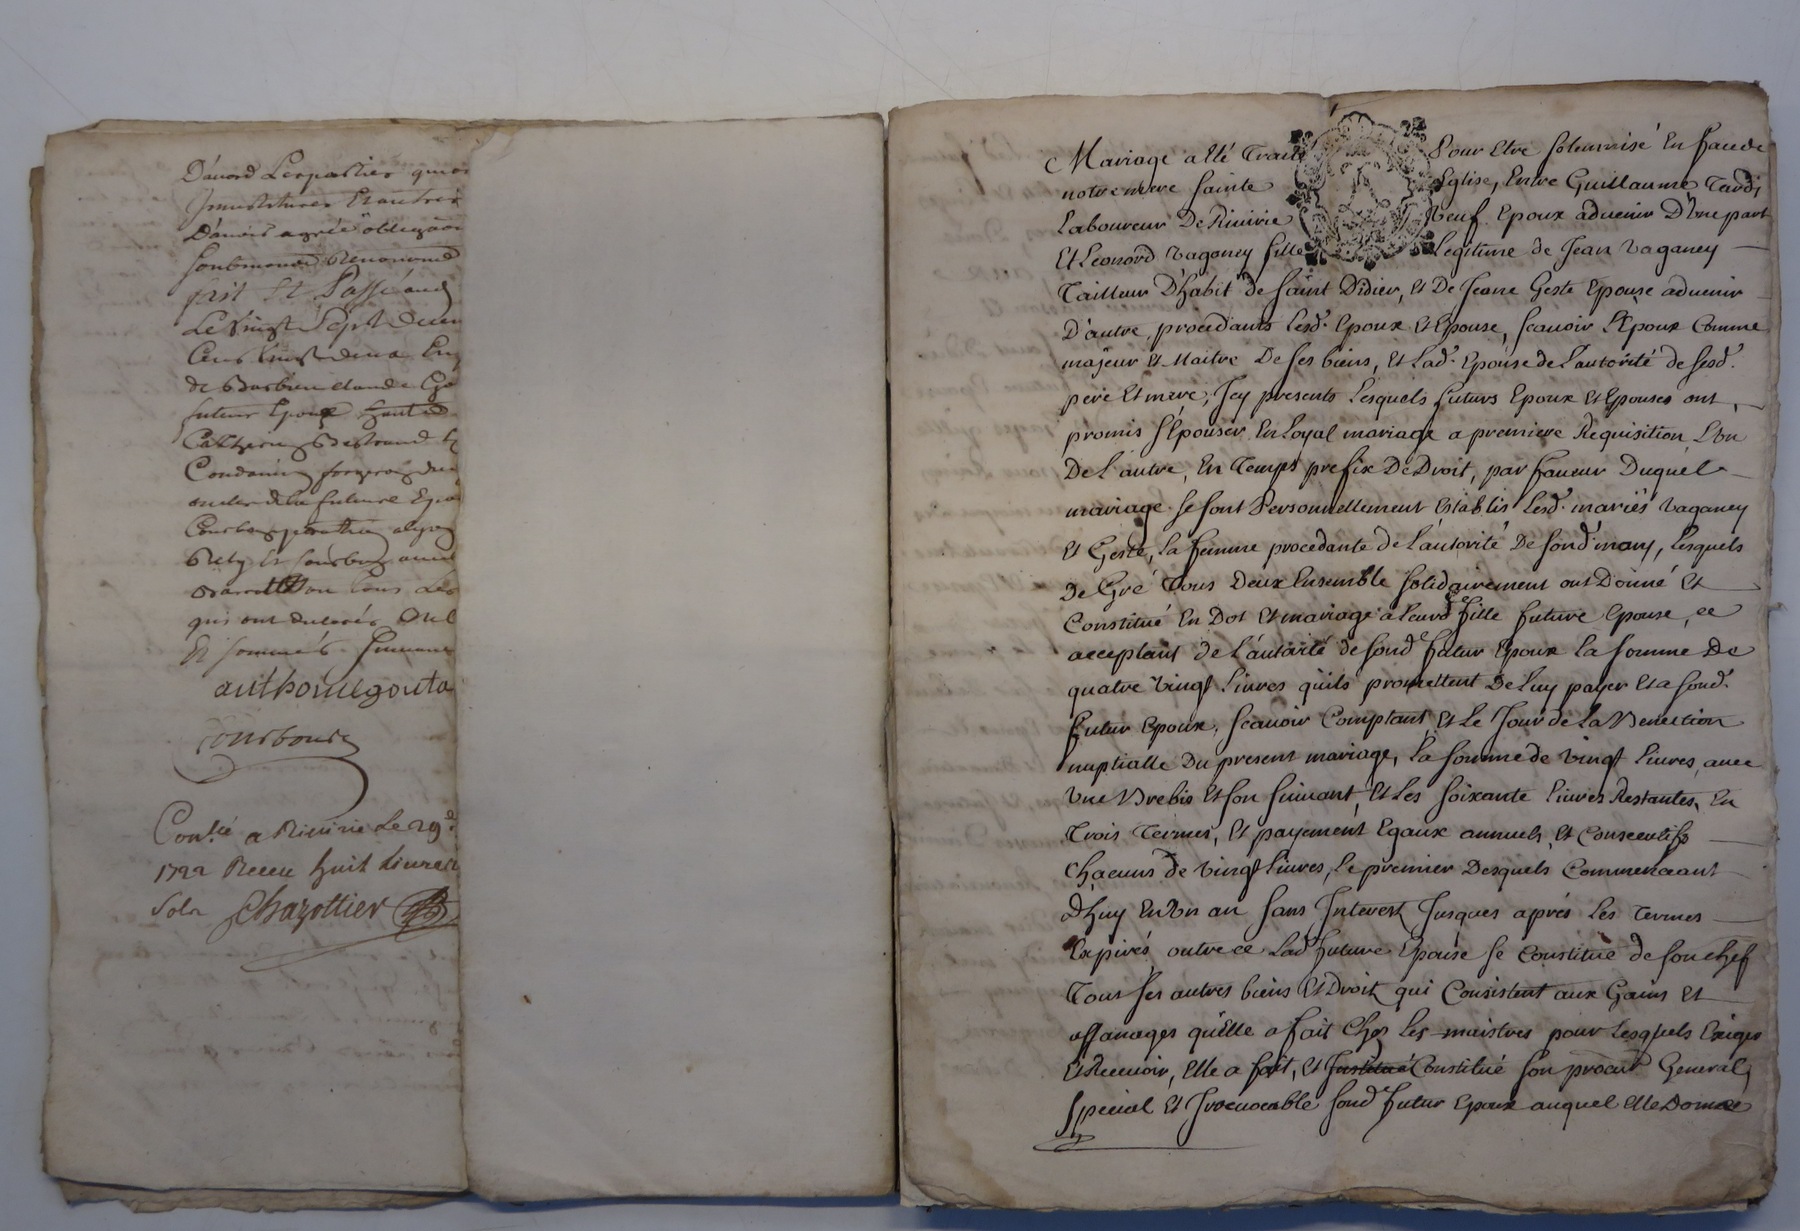 D'accord Lesparties quoi
Investitures Et autres
D'avoir agréé obligaon
Soubmon Renononed
fait Et Passé aud
Le Vingt Sept decem
Cens Vingt deux En
de claude
futeur Epoux
Bertrand
oncle de la future Epo
et
on tous Les
qui ont declarés
Et sommés
anthoinegouta
Courboux
Con.lé a Riverie Le 29.e
1722 Receu huit Livres
Sols Chazottier
Mariage a Eté Traité Pour Etre solemnisé En face de
notre mere Sainte Eglise, Entre Guillaume Tardi,
Laboureur De Riverie Veuf Epoux advenir D'Une part
Et Leonord Vaganey fille Legitime de Jean Vaganey
Tailleur D'habit de Saint Didier, Et De Jeane Geste Epouse advenir
D'autre, procedants Lesd. Epoux Et Epouse, scavoir L'Epoux Comme
majeur Et Maitre De ses biens, Et Lad. Epouse de L'autorité de sesd.
pere Et mere, Icy presents Lesquels futurs Epoux Et Epouses ont
promis s'Epouser En Loyal mariage a premiere Requisition L'Un
De L'autre, En Temps prefix De Droit, par faveur Duquel
mariage se sont Personnellement Establis Lesd. mariés Vaganey
Et Geste, La femme procedante de L'autorité De sond mary, Lesquels
De Gré Tous Deux Ensemble solidairement ont Donné Et
Constitué En Dot Et mariage a Leurd fille future Epouse, ce
acceptant de L'autorité de sond futur Epoux La somme De
quatre Vingt Livres qu'ils promettent De Luy payer Et a sond.
futur Epoux, scavoir Comptant Et Le Jour de La Benection
nuptialle Du present mariage, La somme de Vingt Livres, avec
Une Brebis Et son suivant, Et Les soixante Livres Restantes, En
Trois Termes, Et payement Egaux annuels, Et Consecutifs
Chacuns de Vingt Livres, Le premier Desquels Commencant
D'huy En Un an sans Interest Jusques aprés Les Termes
Expirés outre ce Lad future Epouse se Constitue de son chef
Tous ses autres biens Et Droit qui Consistent aux Gains Et
affanages qu'Elle a fait Chez Les maistres pour Lesquels Exiger
Et Recevoir, Elle a fait, Et Institué Constitué son procur General,
special Et Irrevocable sond futur Epoux auquel Elle Donne